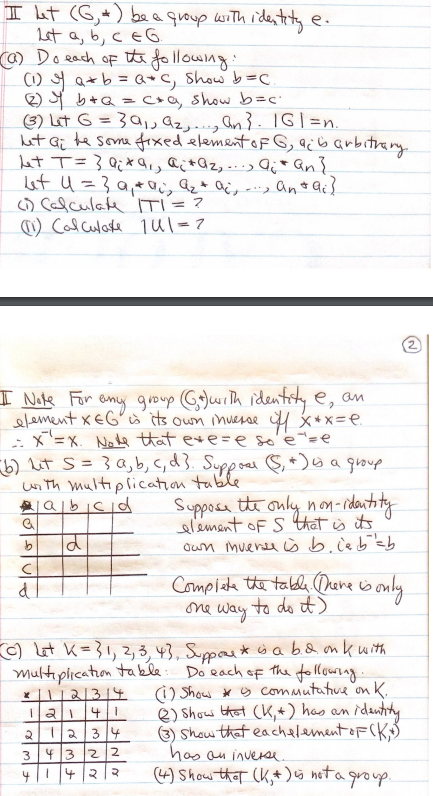 II Let (G,*) be a group with identity e.
Let a, b, c ∈ G.
(a) Do each of the following:
(1) If a*b = a*c, show b=c
(2) If b*a = c*a, show b=c.
(3) Let G = {a₁, a₂, ..., aₙ}. |G|=n.
Let aᵢ be some fixed element of G, aᵢ is arbitrary.
Let T = {aᵢ*a₁, aᵢ*a₂, ..., aᵢ*aₙ}
Let U = {a₁*aᵢ, a₂*aᵢ, ..., aₙ*aᵢ}
(i) Calculate |T| = ?
(ii) Calculate |U| = ?
(2)
II Note For any group (G,*) with identity e, an
element x∈G is its own inverse iff x*x=e.
∴ x⁻¹=x. Note that e*e=e so e⁻¹=e
(b) Let S = {a,b,c,d}. Suppose (S,*) is a group
with multiplication table
* a b c d
a
b d
c
d
Suppose the only non-identity
element of S that is its
own inverse is b, ie b⁻¹=b
Complete the table. (There is only
one way to do it)
(c) Let K={1,2,3,4}, Suppose * is a b.o. on K with
multiplication table: Do each of the following.
* 1 2 3 4
1 2 1 4 1
2 1 2 3 4
3 4 3 2 2
4 1 4 2 2
(1) Show * is commutative on K.
(2) Show that (K,*) has an identity
(3) Show that each element of (K,*)
has an inverse.
(4) Show that (K,*) is not a group.